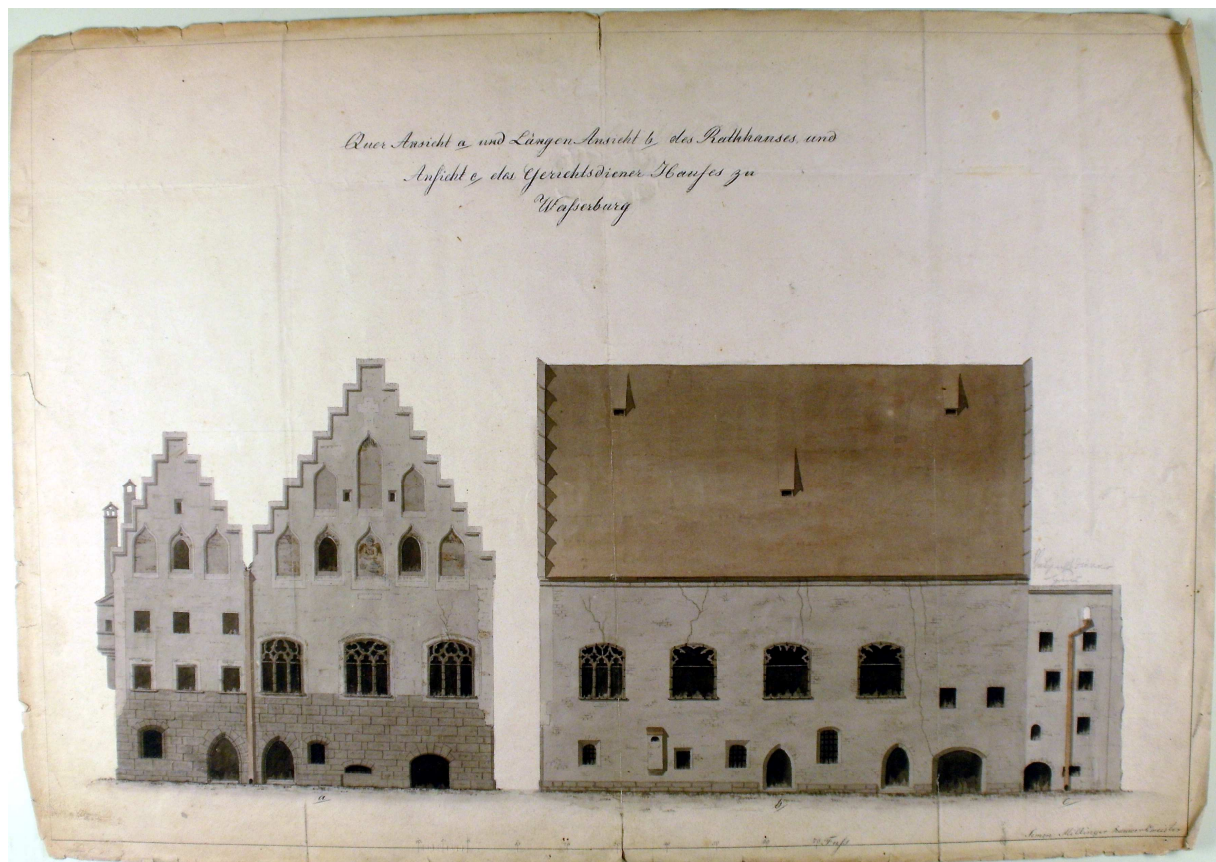 Quer Ansicht a und Längen Ansicht b des Rathhauses, und
Ansicht c des Gerichtsdiener Hauses zu
Wasserburg
a
b
c
Fuß